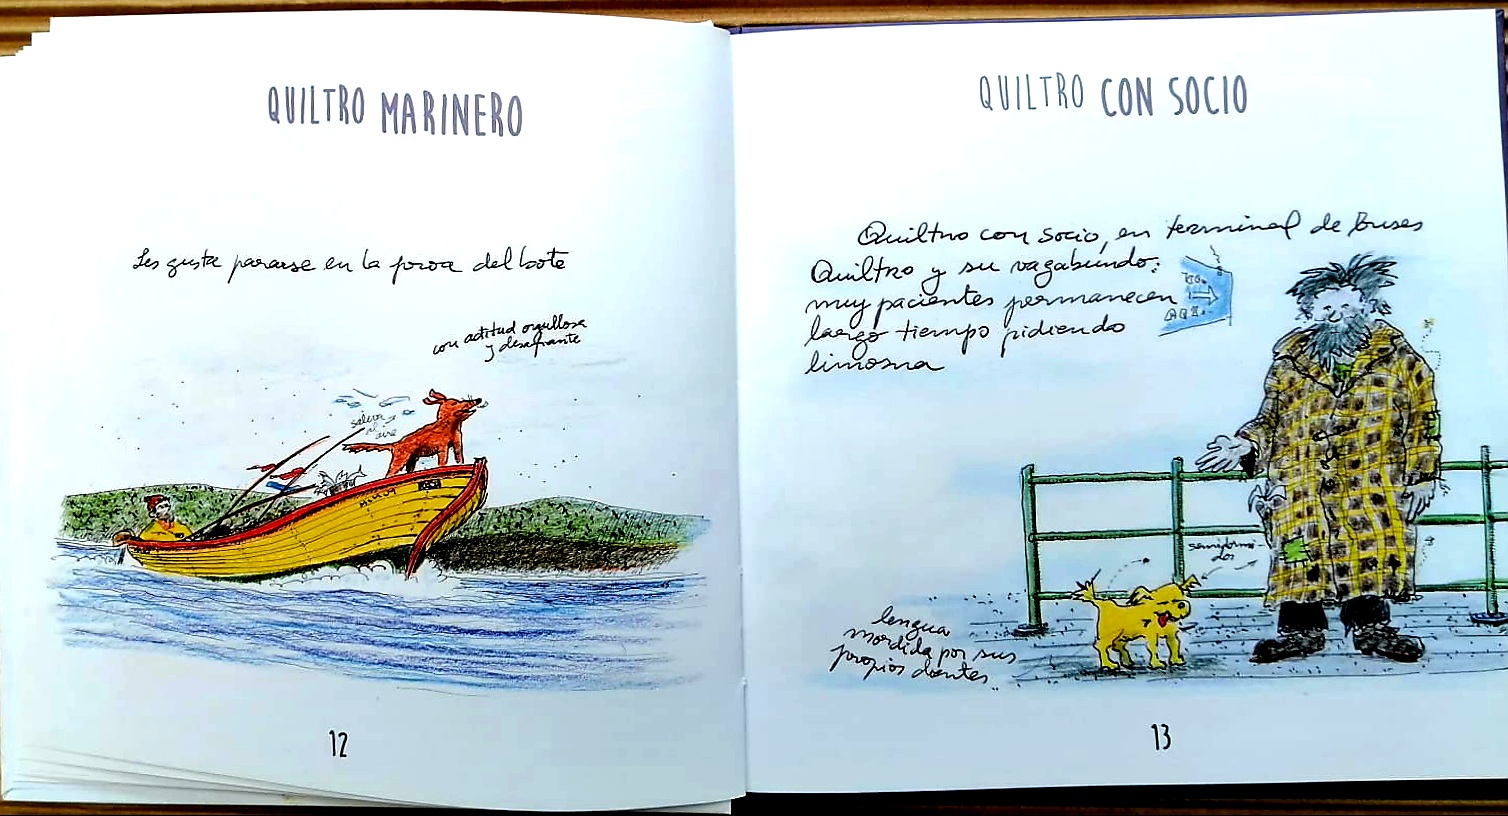 QUILTRO MARINERO
Les gusta pararse en la proa del bote
con actitud orgullosa
y desafiante
saliva
al aire
12
QUILTRO CON SOCIO
Quiltro con socio, en terminal de buses
Quiltro y su vagabundo:
muy pacientes permanecen
largo tiempo pidiendo
limosna
semidormi-
dos
lengua
mordida por sus
propios dientes
13